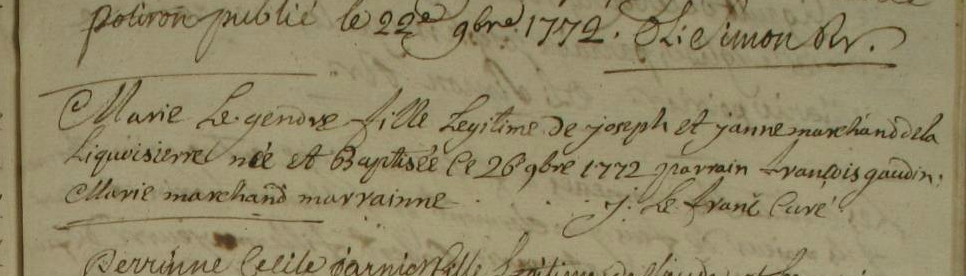 poiron publié le 22e 9bre 1772. Simon
Marie Le gendre fille Legitime de joseph et janne marchand de la
Liquoisierre née et Baptisée le 26 9bre 1772 parrain françois gaudin.
Marie marchand marrainne J. Le franc Curé
Perrinne Cecile fille Legitime de